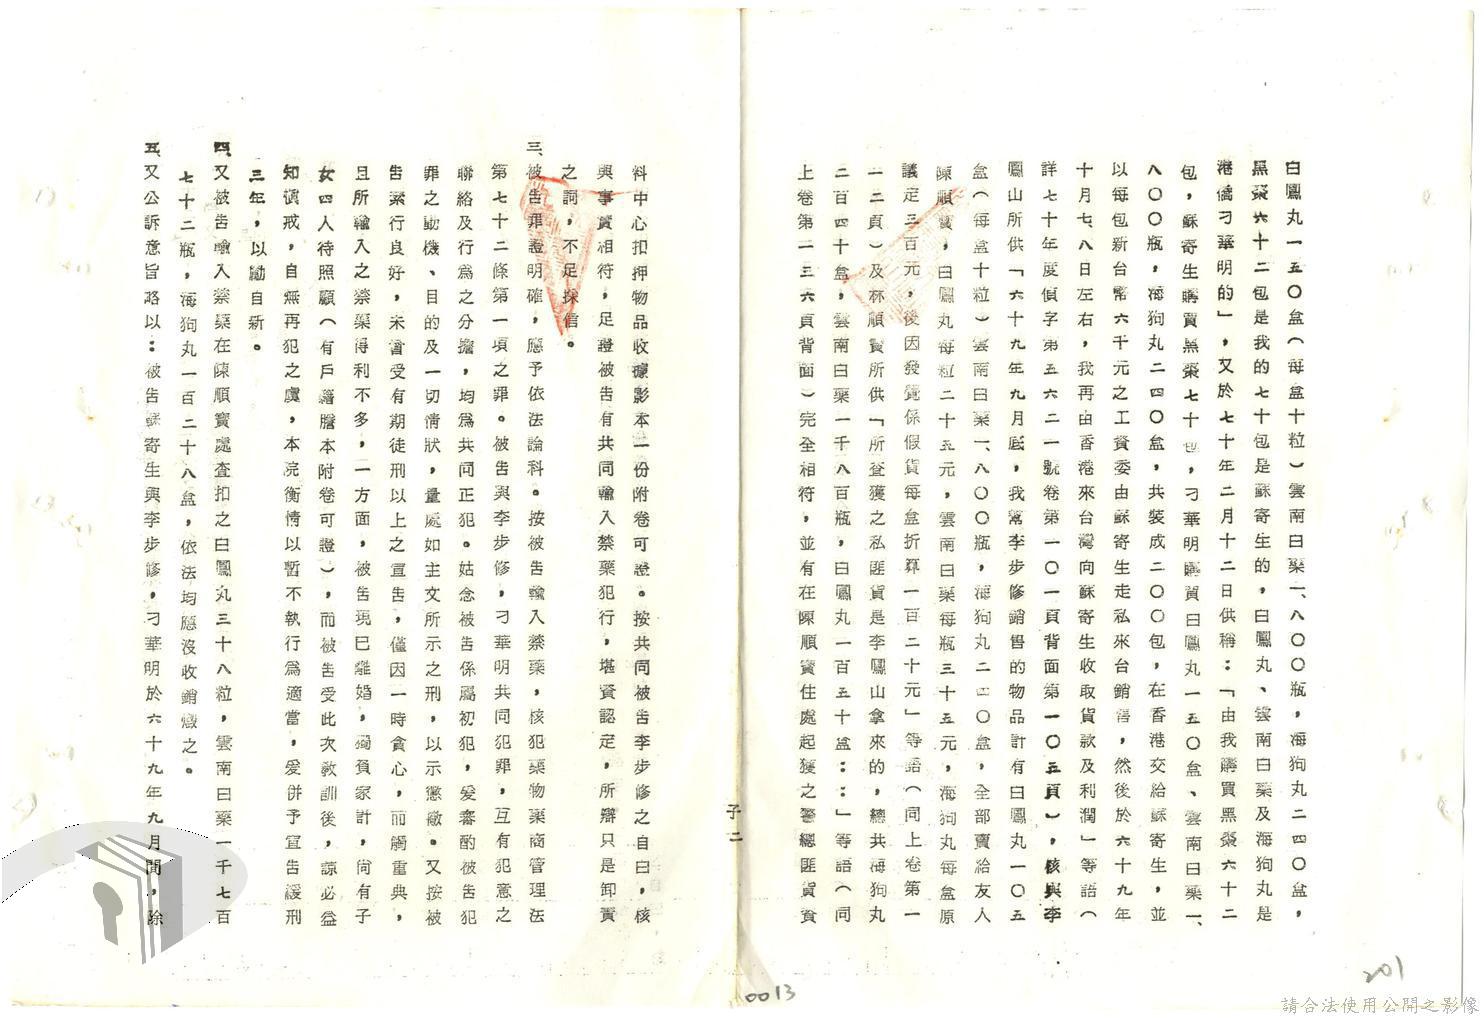 白鳳丸一五〇盒（每盒十粒）雲南白藥一、八〇〇瓶，海狗丸二四〇盒，
黑棗六十二包是我的七十包是蘇寄生的，白鳳丸、雲南白藥及海狗丸是
港僑刁華明的」，又於七十年二月十二日供稱：「由我購買黑棗六十二
包，蘇寄生購買黑棗七十包，刁華明購買白鳳丸一五〇盒、雲南白藥一、
八〇〇瓶，海狗丸二四〇盒，共裝成二〇〇包，在香港交給蘇寄生，並
以每包新台幣六千元之工資委由蘇寄生走私來台銷售，然後於六十九年
十月七、八日左右，我再由香港來台灣向蘇寄生收取貨款及利潤」等語（
詳七十年度偵字第五六二一號卷第一〇一頁背面第一〇三頁），核與李
鳳山所供「六十九年九月底，我幫李步修銷售的物品計有白鳳丸一〇五
盒（每盒十粒）雲南白藥一、八〇〇瓶，海狗丸二四〇盒，全部賣給友人
陳順寶，白鳳丸每粒二十五元，雲南白藥每瓶三十五元，海狗丸每盒原
議定三百元，後因發覺係假貨每盒折算一百二十元」等語（同上卷第一
一二頁）及林順寶所供「所查獲之私匪貨是李鳳山拿來的，總共海狗丸
二百四十盒，雲南白藥一千八百瓶，白鳳丸一百五十盒：：」等語（同
上卷第一三六頁背面）完全相符，並有在陳順寶住處起獲之警總匪貨資
料中心扣押物品收據影本一份附卷可證。按共同被告李步修之自白，核
與事實相符，足證被告有共同輸入禁藥犯行，堪資認定，所辯只是卸責
之詞，不足採信。
三、被告罪證明確，應予依法論科。按被告輸入禁藥，核犯藥物藥商管理法
第七十二條第一項之罪。被告與李步修，刁華明共同犯罪，互有犯意之
聯絡及行為之分擔，均為共同正犯。姑念被告係屬初犯，爰審酌被告犯
罪之動機、目的及一切情狀，量處如主文所示之刑，以示懲儆。又按被
告素行良好，未曾受有期徒刑以上之宣告，僅因一時貪心，而觸重典，
且所輸入之禁藥得利不多，一方面，被告現已離婚，獨負家計，尚有子
女四人待照顧（有戶籍謄本附卷可證），而被告受此次教訓後，諒必益
知慎戒，自無再犯之虞，本院衡情以暫不執行為適當，爰併予宣告緩刑
三年，以勵自新。
四、又被告輸入禁藥在陳順寶處查扣之白鳳丸三十八粒，雲南白藥一千七百
七十二瓶，海狗丸一百二十八盒，依法均應沒收銷燬之。
五、又公訴意旨略以：被告蘇寄生與李步修，刁華明於六十九年九月間，除
子二
0013
201
請合法使用公開之影像